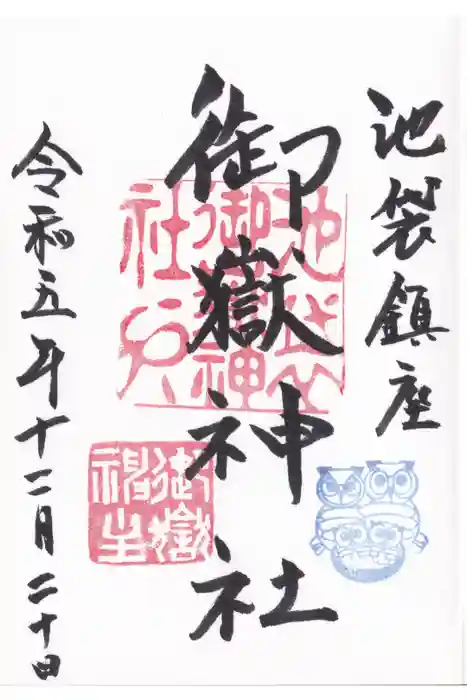 池袋鎮座
御嶽神社
令和五年十二月二十日
池袋
御嶽神
御嶽